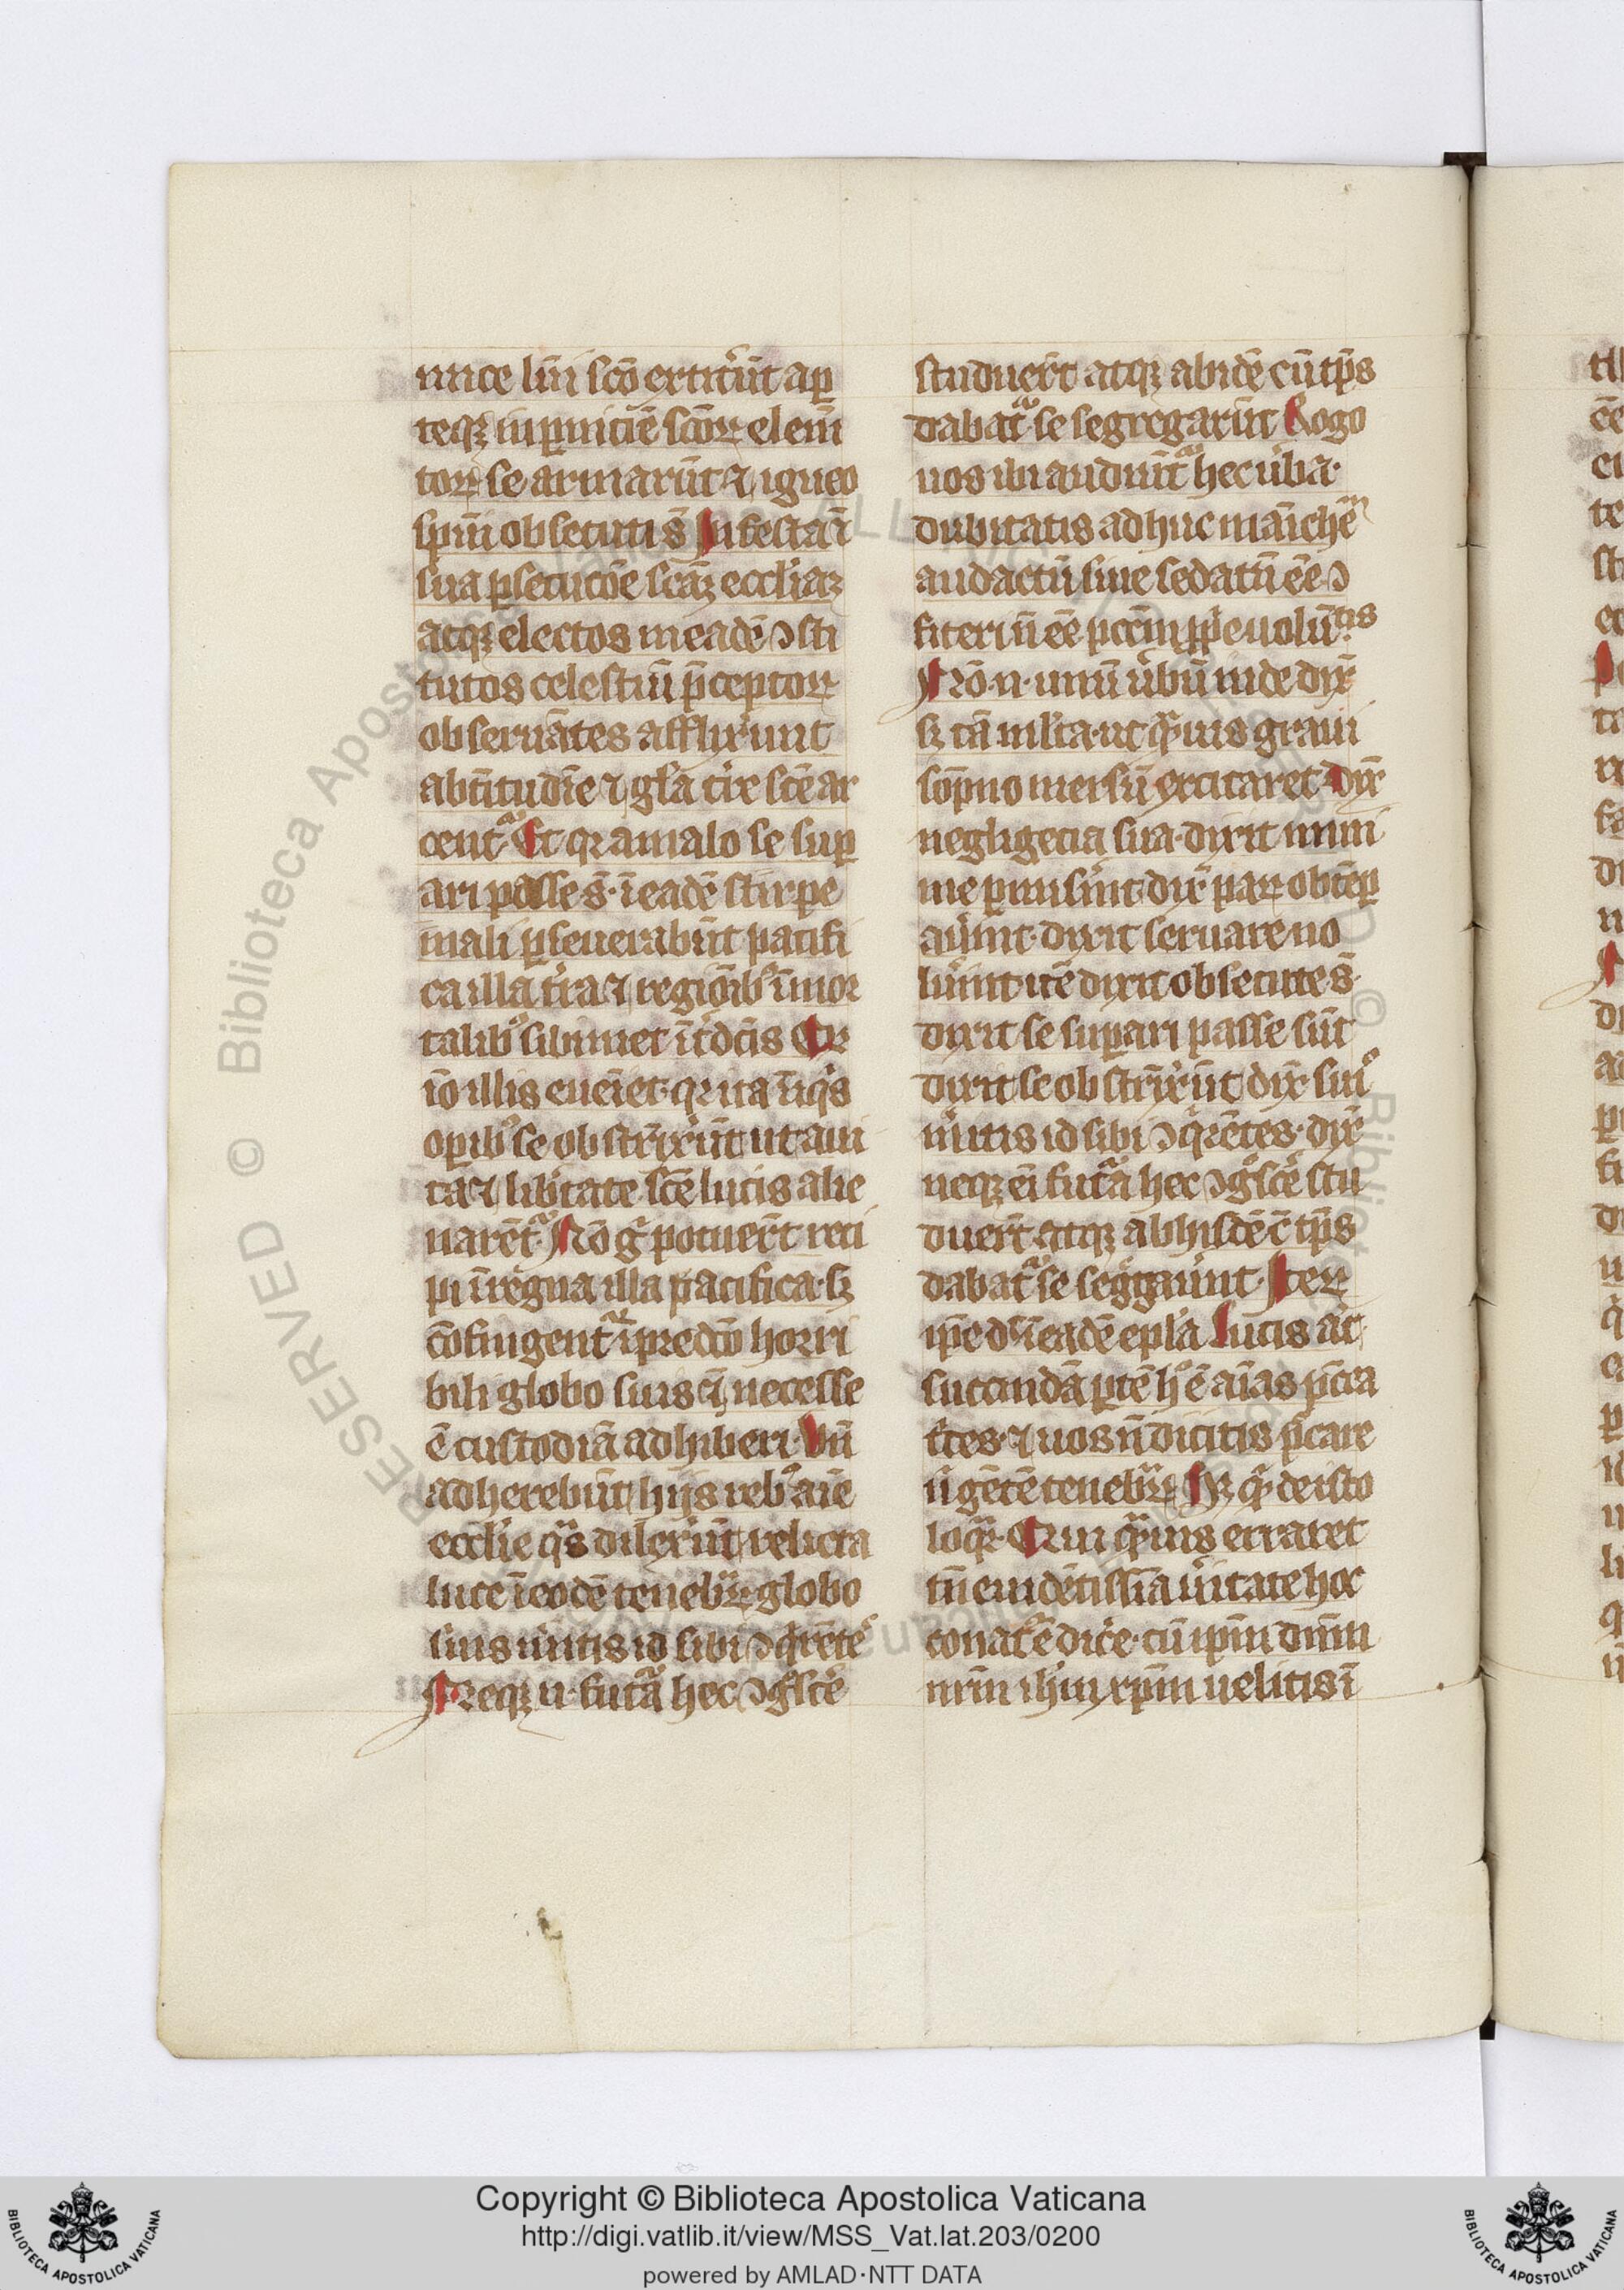 nice lūi sc̄o extitūt ap̲
teqꝫ in p̲niciē sc̄oꝝ elem̄
toꝝ se armarūt ⁊ igneo
sp̄ui obsecuti s̄ Infesta ī
sua p̲secuc̄oe sc̄aꝫ eccl̄iaꝫ
atqꝫ electos in eadē ↄsti
tutos celestiū p̄ceptoꝝ
obseruātes afflixūnt
a bt̄itudīe ⁊ gl̄a t̄re sc̄e ar
cent᷑ Et qꝛ a malo se sup̲
ari passe s̄ · ī eadē stirpe
mali p̲seuerabūt pacifi
ca illa t̄ra ⁊ regiōibꝰ īmor
talibꝰ sibimet īt̄dc̄is Qꝛ
iō illis eueīet · qꝛ ita īiqͥs
op̲ibꝰ se obstrīxūt ut a ui
ta ⁊ lib̄tate sc̄e lucis alie
narēt᷑ Nō gͦ potuer̄t reci
pi ī regna illa pacifica · sꝫ
cōfingent᷑ ī predc̄o horri
bili globo suis cͥ necesse
ē custodiā adhiberi · Vn̄
adherebūt hijs rebꝰ aīe
eccl̄ie qͣs dilexūt relicta
luce ī eodē tenebͣꝝ globo
suis m̄itis id sibi ↄqͥrētes
Neqꝫ n · futͣa hec ↄgͦsc̄e
studuer̄t atqꝫ ab idē cū tp̄s
dabat᷑ se segregarūt Rogo
uos ubi audiūt᷑ hec ūba ·
dubitatis adhuc māicheū
aud actū siue sedatū ēe ↄ
fiteri n̄ ēe pcc̄m pp̄e uolūtis
Nō · n · unū ūbū inde dix̄
sꝫ tā m̄lta · ut qͣuis graui
sōpno mersū excitaret Dix̄
negligecia sua · dixit mini
me p̲misīnt · dix̄ paꝝ obtēp̲
aūint · dixit seruare no
lūint · itē dixit obsecute s̄ ·
dixit se sup̲ari passe sūt
dixit se obstrīxūt dix̄ suiͦ
m̄itis id sibi ↄqͥrētes · dix̄
neqꝫ ei futͣa hec ↄgͦsc̄e stu
duer̄t · atqꝫ ab hisdē c̄ tp̄s
dabat᷑ se seggaūnt · Iteꝝ
ip̄e dt̄ ī eadē epl̄a Lucis aīt
succindā p̲tē hͦ ē aīas pc̄ca
tc̄es · ⁊ uos n̄ dicitis pc̄care
n̄ gētē tenebͣꝝ Sꝫ qͥ de isto
loqͣr · Qui qͣuis erraret
tn̄ euidētissīa ūitate hoc
conat᷑ ē dic̄e · cū ip̄m dn̄m
nrm̄ ihm̄ xp̄m uelitis ī
Copyright © Biblioteca Apostolica Vaticana
http://digi.vatlib.it/view/MSS_Vat.lat.203/0200
powered by AMLAD·NTT DATA